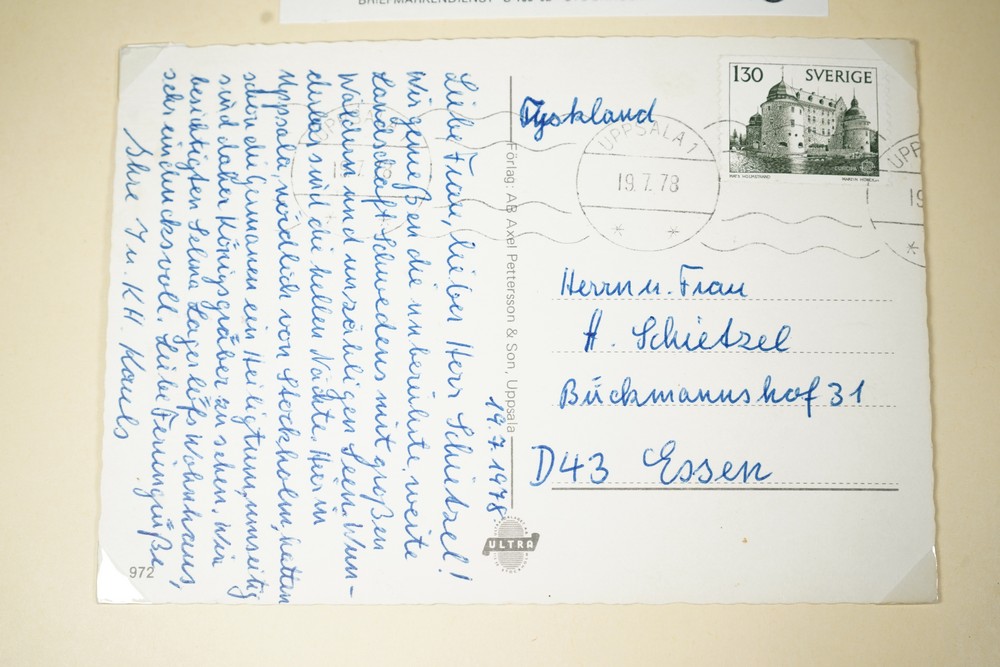 BRIEFMARKENDIENST
19.7.1978
Liebe Frau, lieber Herr Schietzel!
Wir genießen die unberührte, weite
Landschaft Schwedens mit großen
Wäldern und unzähligen Seen. Wun-
derbar sind die hellen Nächte. Hier in
Uppsala, nördlich von Stockholm, hatten
schon die Germanen ein Heiligtum, umseitig
sind da der Königsgräber zu sehen, wir
besichtigten Selma Lagerlöfs Wohnhaus,
sehr eindrucksvoll. Liebe Feriengrüße,
Ihre I. u. KH. Kauls
972
Förlag: AB Axel Pettersson & Son, Uppsala
ULTRA
Tyskland
130 SVERIGE
EUROPA
UPPSALA 1
19.7.78
UPP
19
Herrn u. Frau
H. Schietzel
Bückmannshof 31
D43 Essen